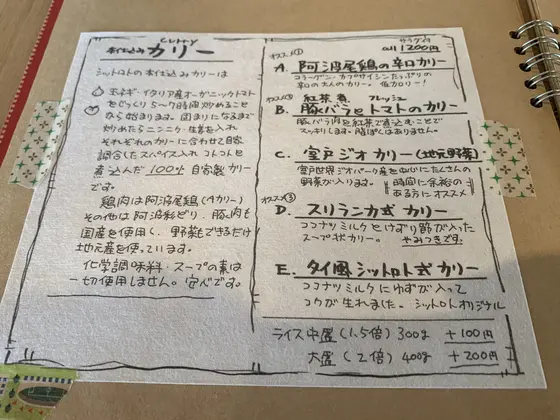 curry
本仕込みカリー
シットロトの本仕込みカリーは
玉ネギ・イタリア産オーガニックトマト
をじっくり5〜7時間炒めること
から始まります。固まりになるまで
炒めたらニンニク・生姜を入れ
それぞれのカリーに合わせて自家
調合したスパイス入れ コトコトと
煮込んだ 100% 自家製カリー
です。
鶏肉は阿波尾鶏(Aカリー)
その他は阿波彩どり、豚肉も
国産を使用し、野菜もできるだけ
地元産を使っています。
化学調味料・スープの素は
一切使用しません。安心です。
サラダ付
all 1200円
オススメ①
A. 阿波尾鶏の辛口カリー
コラーゲン・カプサイシンたっぷりの
辛口の大人のカリー。低カロリー!
オススメ② 紅茶煮 フレッシュ
B. 豚バラとトマトのカリー
豚バラ肉を紅茶で煮込むことで
スッキリします。脂ぽくはありません。
C. 室戸ジオカリー(地元野菜)
室戸世界ジオパーク産を中心にたくさんの
野菜が入ります。
時間に余裕の
ある方にオススメ
オススメ③
D. スリランカ式 カリー
ココナツミルクとけずり節が入った
スープ状カリー。やみつきです。
E. タイ風シットロト式カリー
ココナツミルクにゆずが入って
コクが生れました。シットロトオリジナル
ライス中盛(1.5倍) 300g +100円
大盛(2倍) 400g +200円